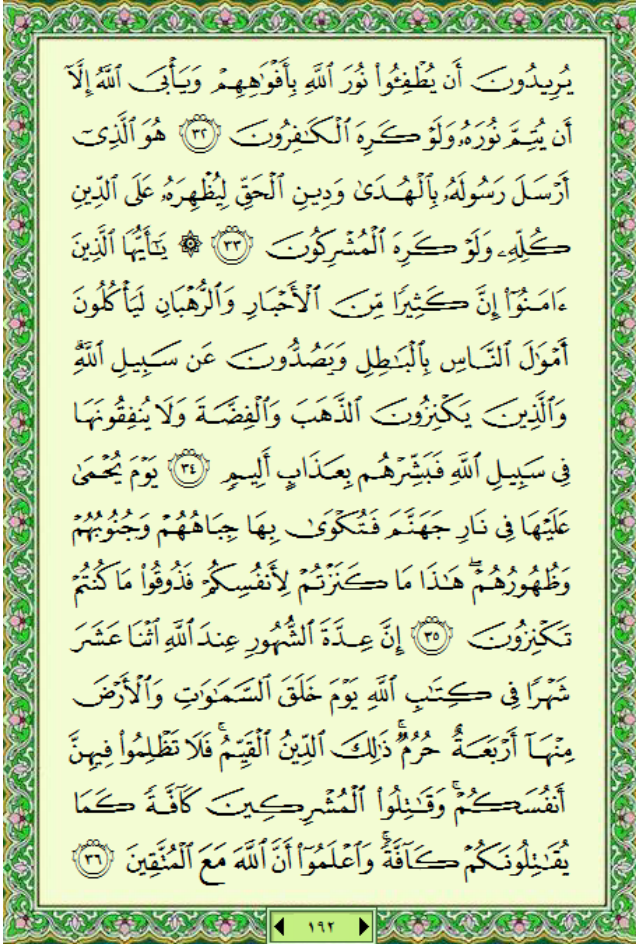 يُرِيدُونَ أَن يُطْفِـُٔوا۟ نُورَ ٱللَّهِ بِأَفْوَٰهِهِمْ وَيَأْبَى ٱللَّهُ إِلَّآ
أَن يُتِمَّ نُورَهُۥ وَلَوْ كَرِهَ ٱلْكَٰفِرُونَ ٣٢ هُوَ ٱلَّذِىٓ
أَرْسَلَ رَسُولَهُۥ بِٱلْهُدَىٰ وَدِينِ ٱلْحَقِّ لِيُظْهِرَهُۥ عَلَى ٱلدِّينِ
كُلِّهِۦ وَلَوْ كَرِهَ ٱلْمُشْرِكُونَ ٣٣ ۞ يَٰٓأَيُّهَا ٱلَّذِينَ
ءَامَنُوٓا۟ إِنَّ كَثِيرًا مِّنَ ٱلْأَحْبَارِ وَٱلرُّهْبَانِ لَيَأْكُلُونَ
أَمْوَٰلَ ٱلنَّاسِ بِٱلْبَٰطِلِ وَيَصُدُّونَ عَن سَبِيلِ ٱللَّهِ ۗ
وَٱلَّذِينَ يَكْنِزُونَ ٱلذَّهَبَ وَٱلْفِضَّةَ وَلَا يُنفِقُونَهَا
فِى سَبِيلِ ٱللَّهِ فَبَشِّرْهُم بِعَذَابٍ أَلِيمٍ ٣٤ يَوْمَ يُحْمَىٰ
عَلَيْهَا فِى نَارِ جَهَنَّمَ فَتُكْوَىٰ بِهَا جِبَاهُهُمْ وَجُنُوبُهُمْ
وَظُهُورُهُمْ ۖ هَٰذَا مَا كَنَزْتُمْ لِأَنفُسِكُمْ فَذُوقُوا۟ مَا كُنتُمْ
تَكْنِزُونَ ٣٥ إِنَّ عِدَّةَ ٱلشُّهُورِ عِندَ ٱللَّهِ ٱثْنَا عَشَرَ
شَهْرًا فِى كِتَٰبِ ٱللَّهِ يَوْمَ خَلَقَ ٱلسَّمَٰوَٰتِ وَٱلْأَرْضَ
مِنْهَآ أَرْبَعَةٌ حُرُمٌ ۚ ذَٰلِكَ ٱلدِّينُ ٱلْقَيِّمُ ۚ فَلَا تَظْلِمُوا۟ فِيهِنَّ
أَنفُسَكُمْ ۚ وَقَٰتِلُوا۟ ٱلْمُشْرِكِينَ كَآفَّةً كَمَا
يُقَٰتِلُونَكُمْ كَآفَّةً ۚ وَٱعْلَمُوٓا۟ أَنَّ ٱللَّهَ مَعَ ٱلْمُتَّقِينَ ٣٦
١٩٢